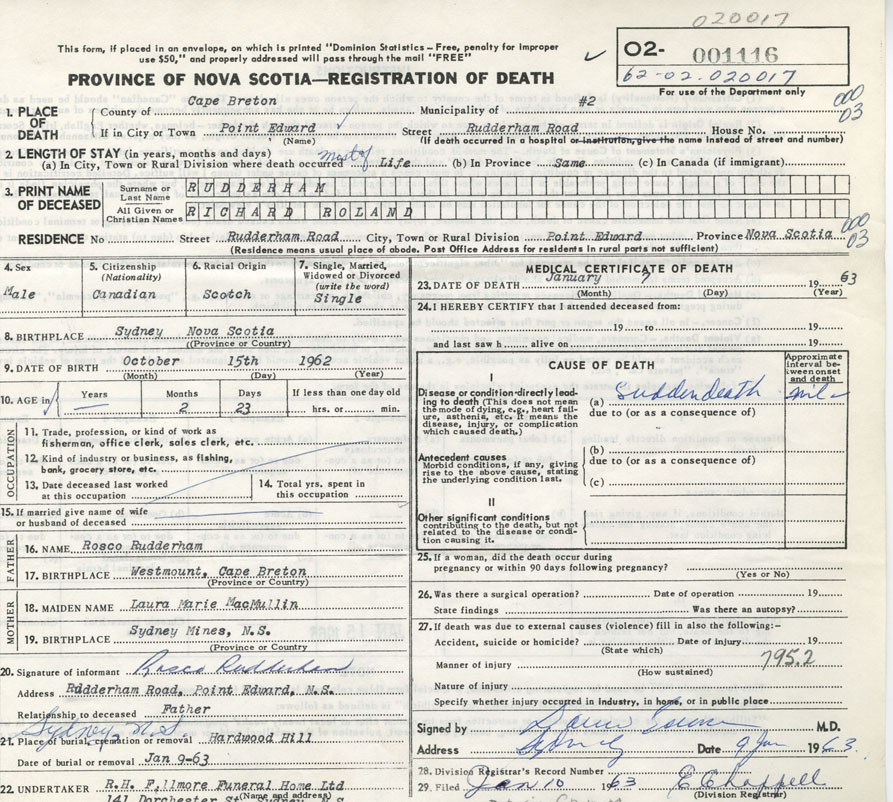 020017
This form, if placed in an envelope, on which is printed "Dominion Statistics – Free, penalty for improper
use $50," and properly addressed will pass through the mail "FREE"
PROVINCE OF NOVA SCOTIA—REGISTRATION OF DEATH
O2- 001116
62-02.020017
For use of the Department only
1. PLACE OF DEATH
County of Cape Breton Municipality of #2
If in City or Town Point Edward Street Rudderham Road House No.
(Name) (If death occurred in a hospital or institution, give the name instead of street and number)
000
03
2. LENGTH OF STAY (in years, months and days)
(a) In City, Town or Rural Division where death occurred most of Life (b) In Province Same (c) In Canada (if immigrant)
3. PRINT NAME OF DECEASED
Surname or Last Name RUDDERHAM
All Given or Christian Names RICHARD ROLAND
RESIDENCE No Street Rudderham Road City, Town or Rural Division Point Edward Province Nova Scotia
(Residence means usual place of abode. Post Office Address for residents in rural parts not sufficient)
000
03
4. Sex
Male
5. Citizenship
(Nationality)
Canadian
6. Racial Origin
Scotch
7. Single, Married,
Widowed or Divorced
(write the word)
Single
8. BIRTHPLACE Sydney Nova Scotia
(Province or Country)
9. DATE OF BIRTH October 15th 1962
(Month) (Day) (Year)
10. AGE in Years Months Days If less than one day old
2 23 hrs. or min.
OCCUPATION
11. Trade, profession, or kind of work as
fisherman, office clerk, sales clerk, etc.
12. Kind of industry or business, as fishing,
bank, grocery store, etc.
13. Date deceased last worked
at this occupation
14. Total yrs. spent in
this occupation
15. If married give name of wife
or husband of deceased
FATHER
16. NAME Rosco Rudderham
17. BIRTHPLACE Westmount, Cape Breton
(Province or Country)
MOTHER
18. MAIDEN NAME Laura Marie MacMullin
19. BIRTHPLACE Sydney Mines, N.S.
(Province or Country)
20. Signature of informant Rosco Rudderham
Address Rudderham Road, Point Edward, N.S.
Relationship to deceased Father
Sydney N.S.
21. Place of burial, cremation or removal Hardwood Hill
Date of burial or removal Jan 9-63
22. UNDERTAKER R.H. Fillmore Funeral Home Ltd
(Name and address)
141 Dorchester St Sydney N S
MEDICAL CERTIFICATE OF DEATH
23. DATE OF DEATH January 7 1963
(Month) (Day) (Year)
24. I HEREBY CERTIFY that I attended deceased from:
19 to 19
and last saw h alive on 19
CAUSE OF DEATH
Approximate
interval be-
tween onset
and death
I
Disease or condition directly lead-
ing to death (This does not mean
the mode of dying, e.g., heart fail-
ure, asthenia, etc. It means the
disease, injury, or complication
which caused death.)
(a) Sudden death
due to (or as a consequence of)
Antecedent causes
Morbid conditions, if any, giving
rise to the above cause, stating
the underlying condition last.
(b)
due to (or as a consequence of)
(c)
II
Other significant conditions
contributing to the death, but not
related to the disease or condi-
tion causing it.
25. If a woman, did the death occur during
pregnancy or within 90 days following pregnancy?
(Yes or No)
26. Was there a surgical operation? Date of operation 19
State findings Was there an autopsy?
27. If death was due to external causes (violence) fill in also the following:–
Accident, suicide or homicide? Date of injury 19
(State which)
795.2
Manner of injury
(How sustained)
Nature of injury
Specify whether injury occurred in industry, in home, or in public place
Signed by M.D.
Address Sydney Date 9 Jan 1963.
28. Division Registrar's Record Number
29. Filed Jan 10 1963 E Chappell
(Division Registrar)